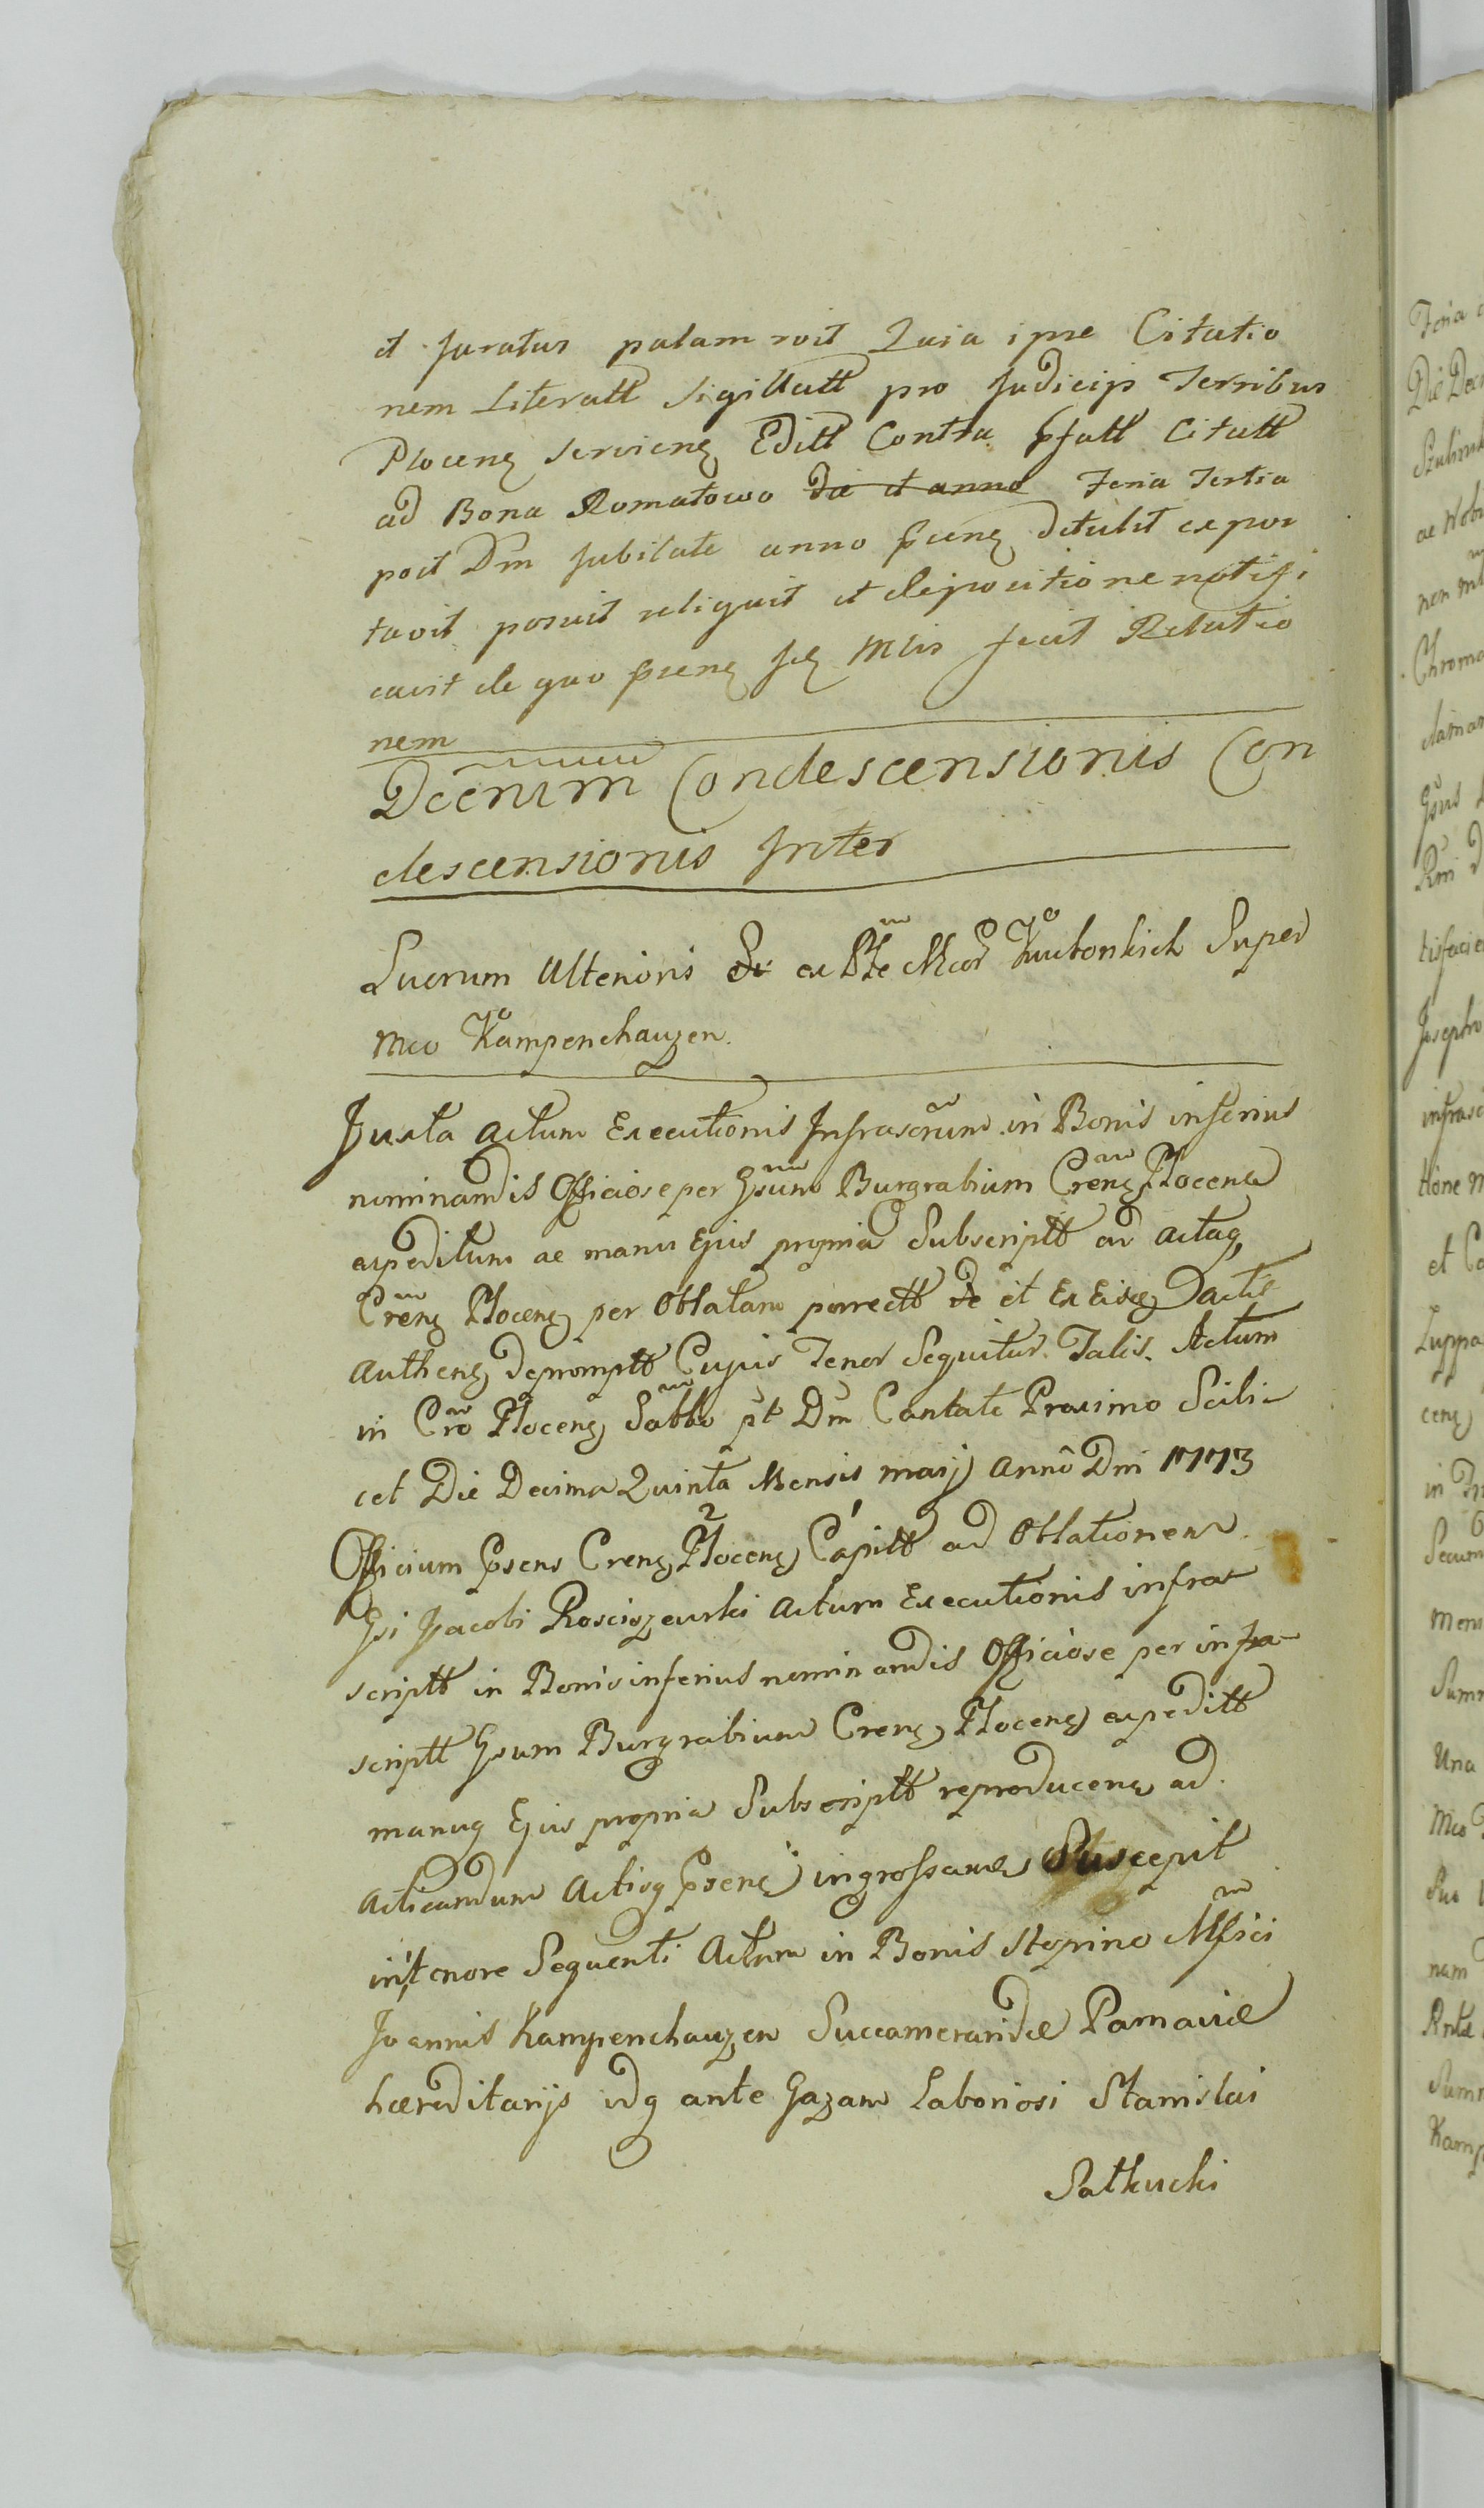 et juratus palam roit Quia ipse Citatio
nem Literatt Sigillatt pro Judicijs Terribus
Plocenę servienę Editt Contra pfatt Citatt
ad Bona Romatowo die et anno Feria Tertia
post Dm Jubilate anno psenę detulit expor
tavit posuit reliquit et depositione notifi
cavit de quo psenę sę Mlis fecit Relatio
nem
Dcenium Condescensionis Con
descensionis Inter
Suorum Ulterioris ex Pte Mcor Super
Mco Kampenchauzen.
Juxta actum Executionis Infrascrum in Bonis inferius
nominandis Officiose per Gsum Burgrabium Crenę Plocenę
expeditum ac manu Ejus propria Subscriptt ad actaq
Crenę Plocenę per Oblatam porrectt de et Ex Eisdę actis
authenę depromptt Cujus Tenor Sequitur Talis. Actum
in Cro Plocenę Sabbo pt Dm Cantate Proximo Scili-
cet Die Decima Quinta Mensis maij anno Dni 1773
Officium psens Crenę Plocenę Capitt ad Oblationem
Gsi Jacobi Rosciszewski actum Executionis infra
scriptt in Bonis inferius nominandis Officiose per infra-
scriptt Gsum Burgrabium Crenę Plocenę expeditt
manuq Ejus propria Subscriptt reproducenę ad
acticandum actisq psenę ingrossanę Suscepit
in tenore Sequenti Actum in Bonis Stopino Mfici
Joannis Kampenchauzen Succameraridae Parnaviae
haereditarijs idq ante Gazam Laboriosi Stanislai
Satkucki